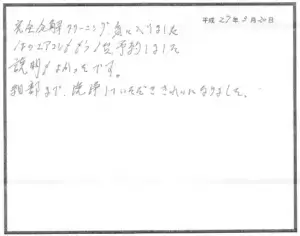 平成27年8月20日
完全分解クリーニング気に入りました
エアコンもう1台予約しました
説明もよかったです。
細部まで、洗浄していただききれいになりました。